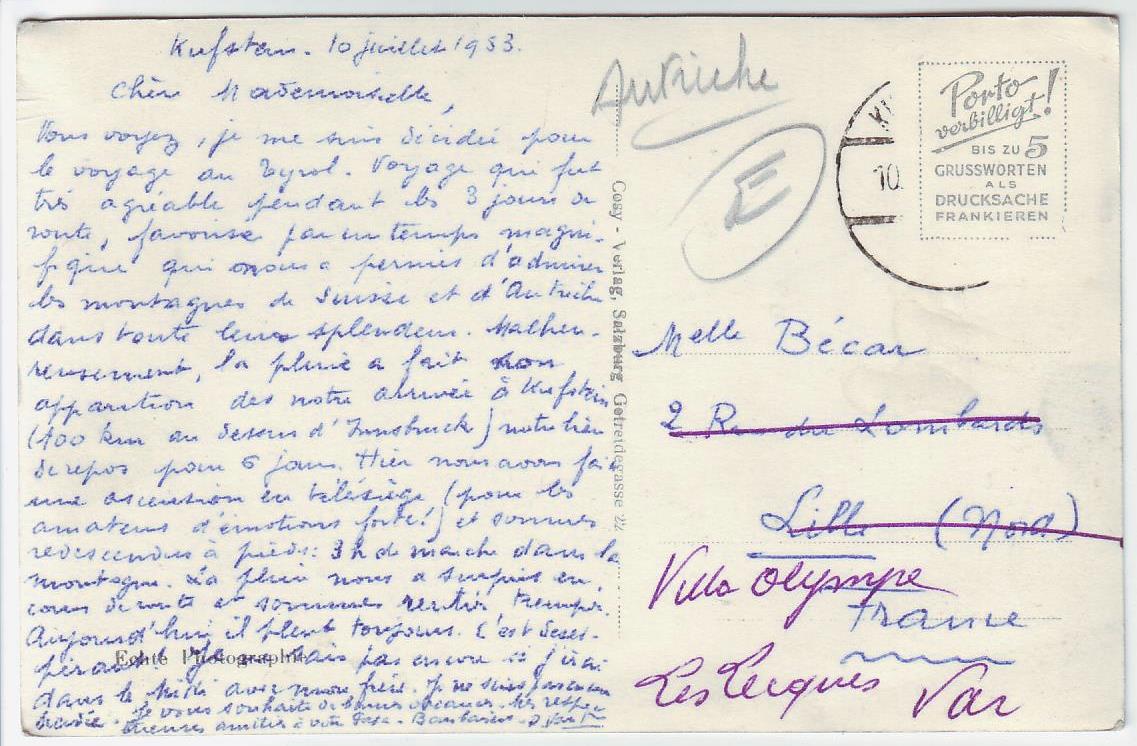 Kufstein. 10 juillet 1953.
Chère Mademoiselle,
Vous voyez, je me suis décidée pour
le voyage au Tyrol. Voyage qui fut
très agréable pendant les 3 jours de
route, favorisé par un temps magni-
fique qui nous a permis d'admirer
les montagnes de Suisse et d'Autriche
dans toute leur splendeur. Malheu-
reusement, la pluie a fait son
apparition dès notre arrivée à Kufstein
(100 km au dessous d'Innsbruck) notre lieu
de repos pour 6 jours. Hier nous avons fait
une ascension en télésiège (pour les
amateurs d'émotions forte!) et sommes
redescendus à pieds: 3h de marche dans la
montagne. La pluie nous a surpris en
cours de route et sommes rentrés trempés.
Aujourd'hui il pleut toujours. C'est déses-
pérant! Je ne sais pas encore si j'irai
dans le Midi avec mon frère. Je ne suis pas encore
décidée. Je vous souhaite de bonnes vacances. Mes respec-
tueuses amitiés à votre
Echte Photographie
Cosy - Verlag, Salzburg, Getreidegasse 22
Autriche
E
10.
Porto
verbilligt!
BIS ZU 5
GRUSSWORTEN
ALS
DRUCKSACHE
FRANKIEREN
Melle Bécar
2 Rue des Lombards
Lille (Nord)
Villa Olympe
France
Les Lecques Var